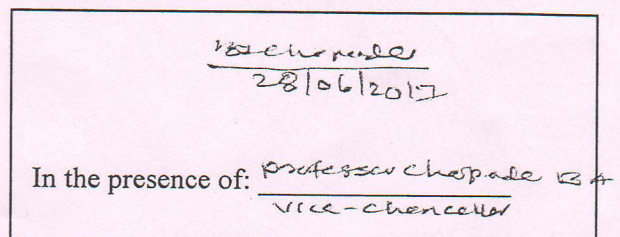 BAChopade
28/06/2017
In the presence of: professor chopade BA
vice-chancellor